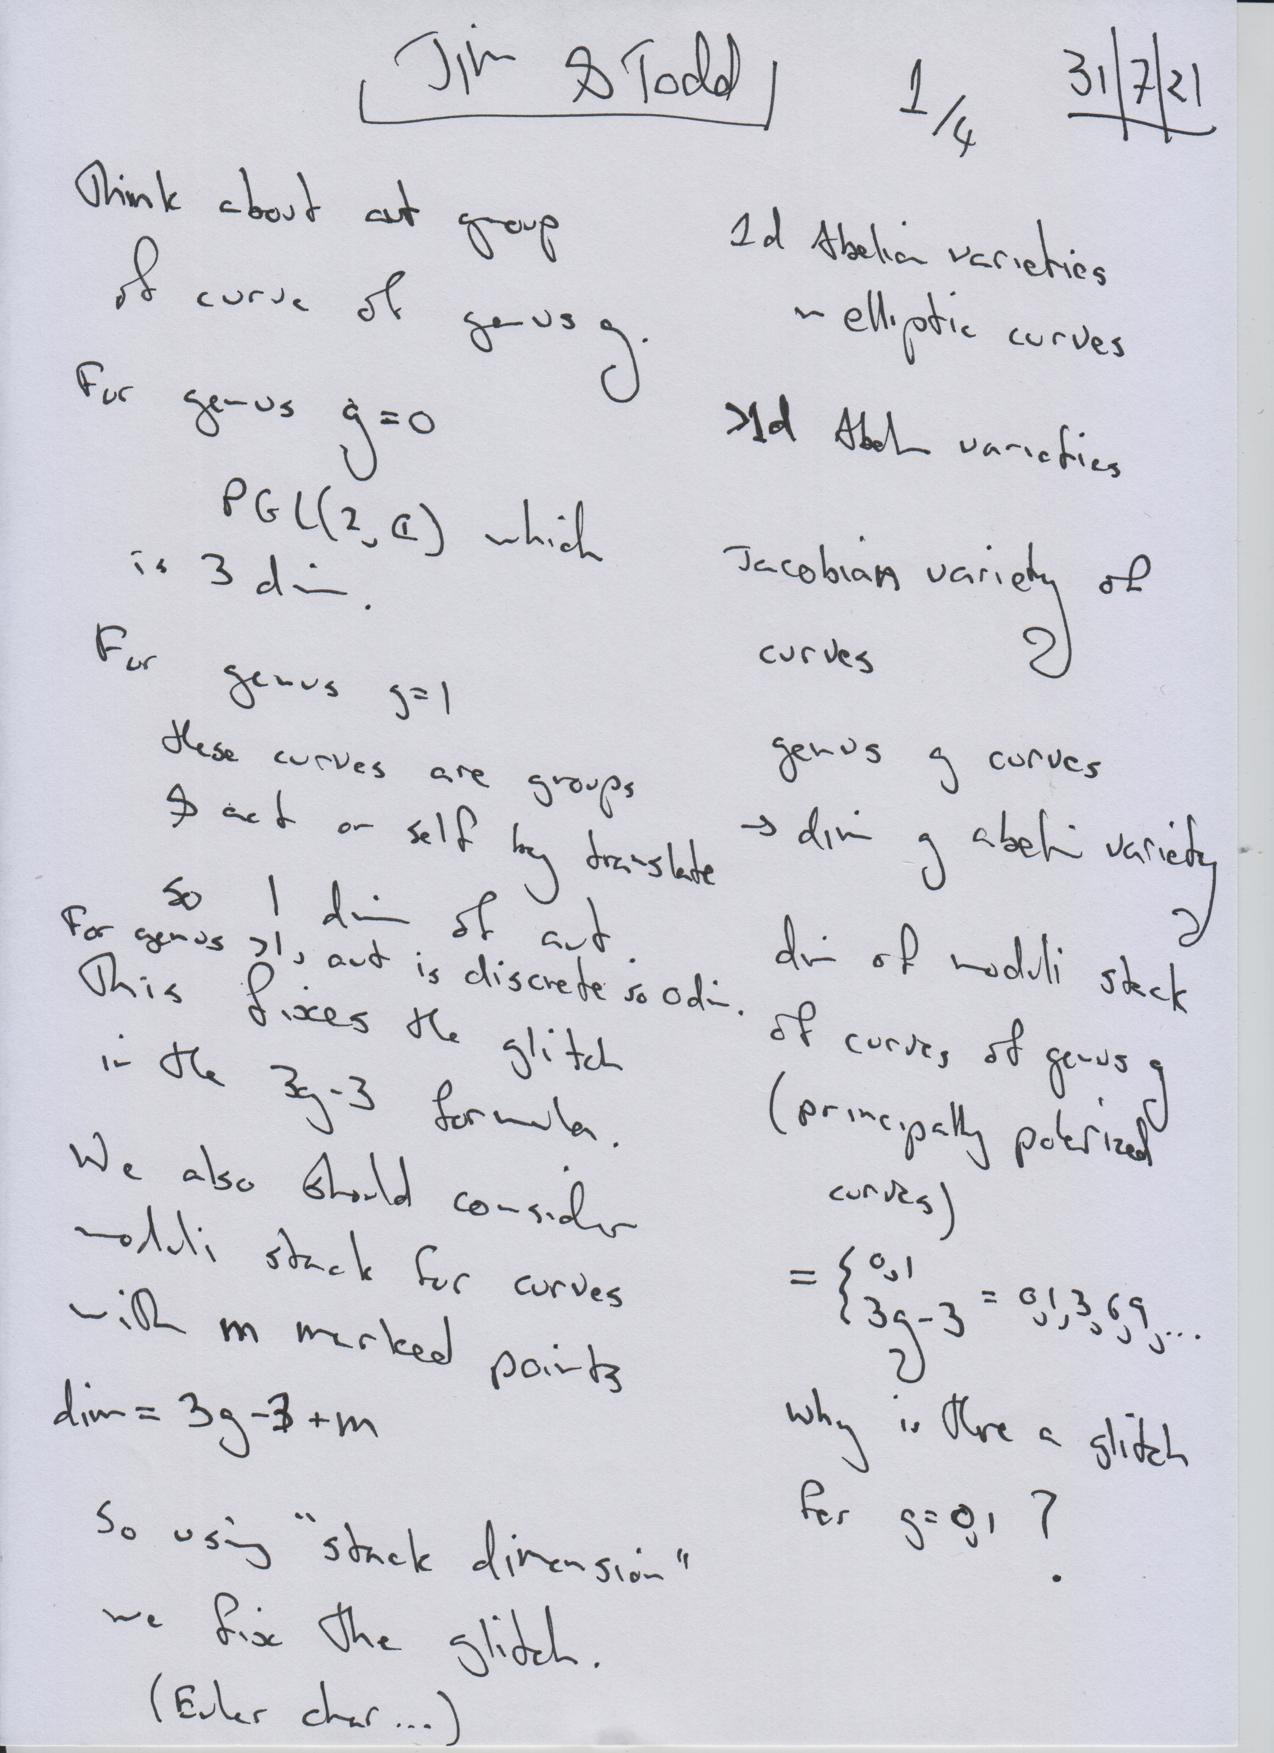 Jim & Todd
1/4
31/7/21
Think about aut group
of curve of genus g.
For genus g=0
PGL(2,ℂ) which
is 3 dim.
For genus g=1
these curves are groups
& act on self by translate
so 1 dim of aut.
For genus >1, aut is discrete so 0 dim.
This fixes the glitch
in the 3g-3 formula.
We also should consider
moduli stack for curves
with m marked points
dim = 3g-3+m
So using "stack dimension"
we fix the glitch.
(Euler char...)
1d Abelian varieties
~ elliptic curves
>1d Abelian varieties
Jacobian variety of
curves
genus g curves
→ dim g abelian variety
dim of moduli stack
of curves of genus g
(principally polarized
curves)
= { 0,1
3g-3 = 0,1,3,6,9,...
Why is there a glitch
for g=0,1 ?